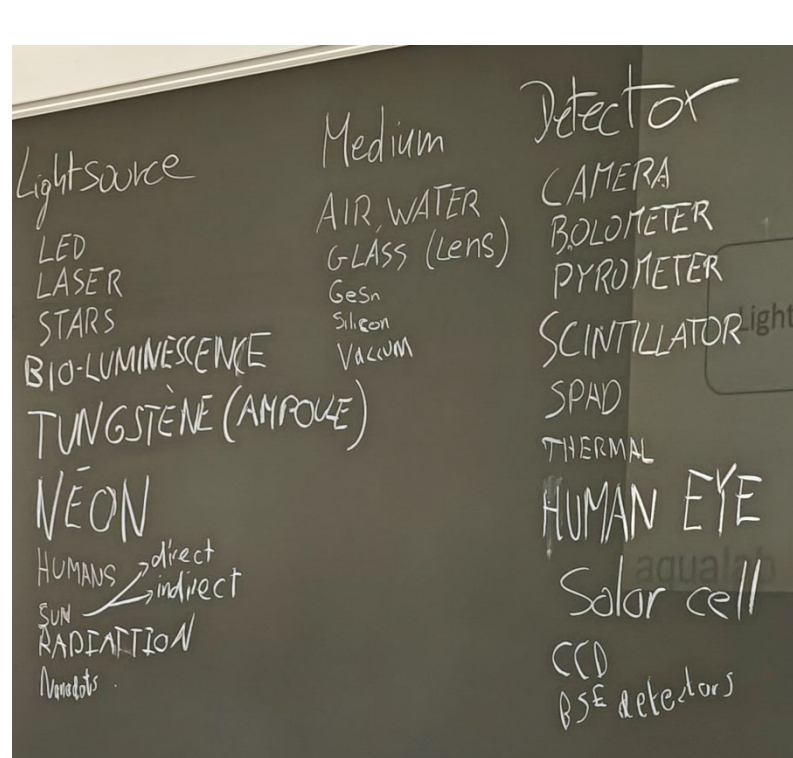 Lightsource
LED
LASER
STARS
BIO-LUMINESCENCE
TUNGSTÈNE (AMPOULE)
NÉON
HUMANS
direct
SUN
indirect
RADIATTION
Nanodots.
Medium
AIR, WATER
GLASS (Lens)
GeSn
Silicon
VACCUM
Detector
CAMERA
BOLOMETER
PYROMETER
SCINTILLATOR
SPAD
THERMAL
HUMAN EYE
Solar cell
CCD
BSE detectors
Light
aqualab